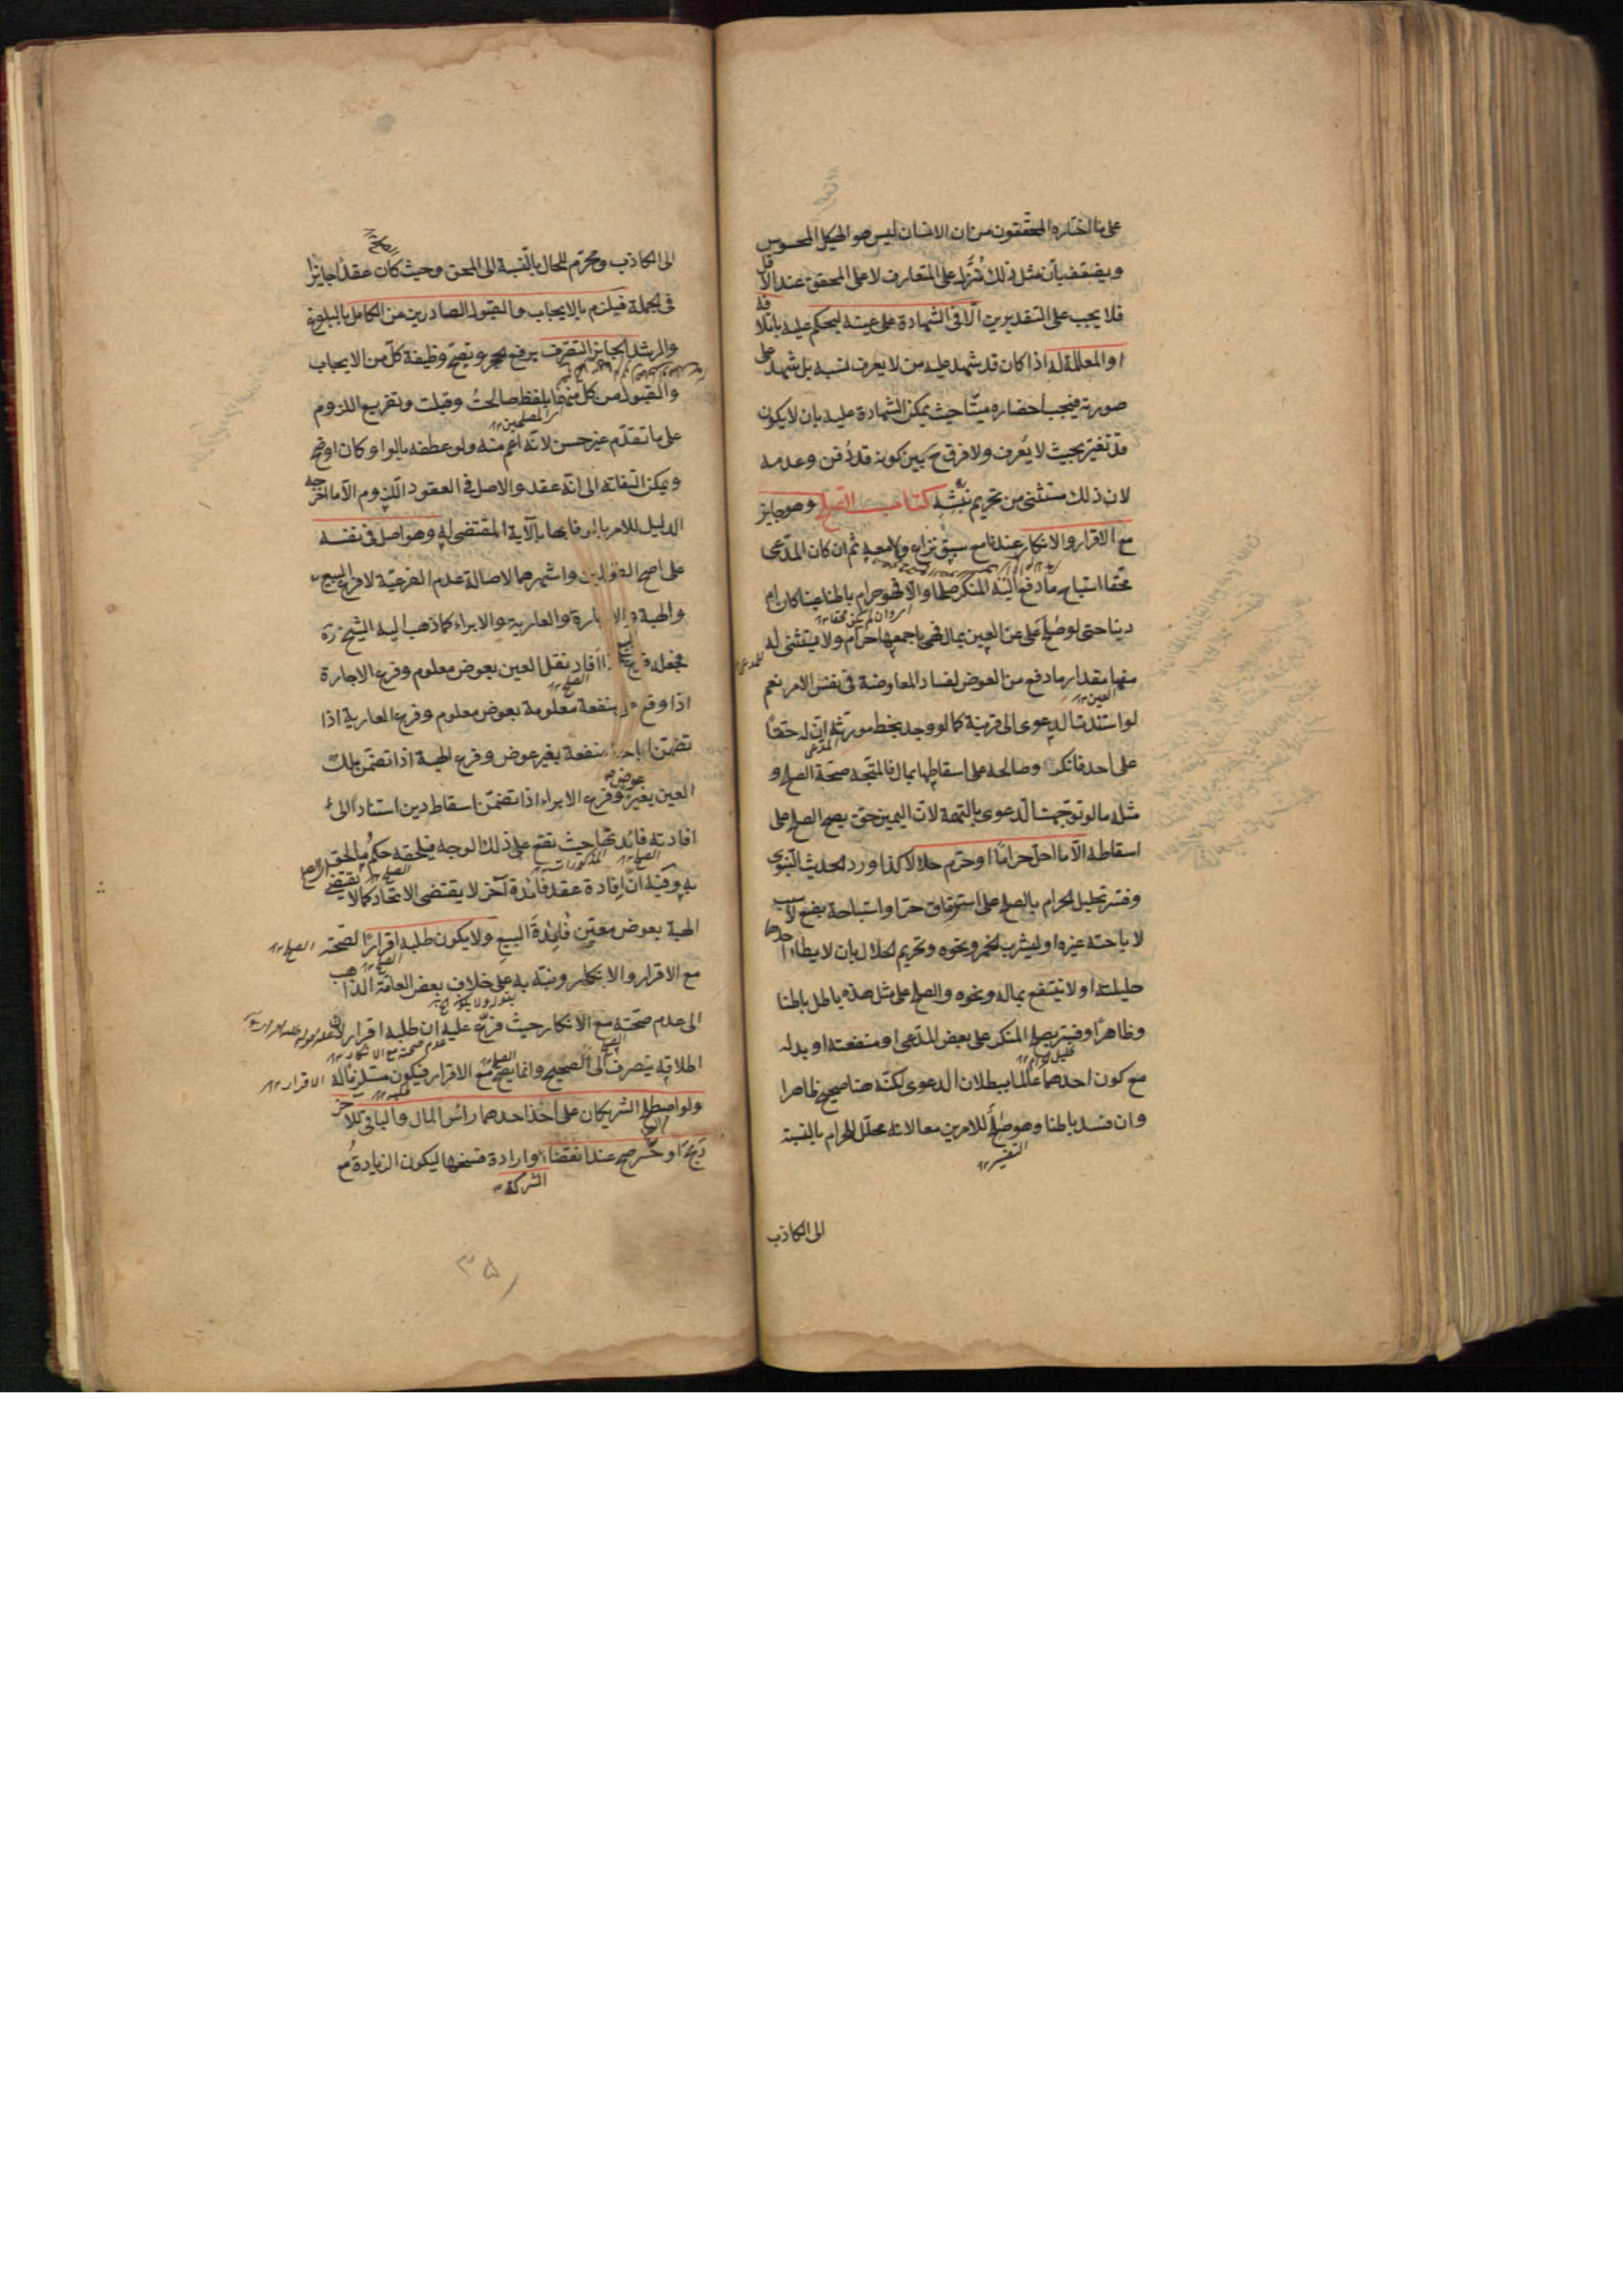 على ما اختاره المحققون من ان الانسان ليس هو الهيكل المحسوس
ويضعف بان مثل ذلك مُنزَّل على المتعارف لا على المحقق عند الاقل
فلا يجب على التقديرين الّا فى الشهادة على عينه ليحكم عليه باتلافه
او المعاملة له اذا كان قد شهد عليه من لا يعرف نسبه بل شهد على
صورته فيجب احضاره ميتّا حيث يمكن الشهادة عليه بان لا يكون
قد تغيّر بحيث لا يُعرف ولا فرق ح بين كونه قد دُفن وعدمه
لان ذلك مستثنى من تحريم نَبشه كتاب الصلح وهو جايز
مع الاقرار والانكار عندنا مع سبق نزاع ولا معه ثم ان كان المدّعى
محقّا استباح ما دفع اليه المنكر صلحا والّا فهو حرام باطنا عينا كان ام
اى وان لم يكن محقا ١٢
دينا حتى لو صُلح على عن العين بمال فهى باجمعها حرام ولا يستثنى له
منها مقدار ما دفع من العوض لفساد المعاوضة فى نفس الامر نعم
العين ١٢
لو استندت الدعوى الى قرينة كما لو وجد بخط مورّثه انّ له حقّا
المدعى
على احد فانكر وصالحه على اسقاطها بمال فالمتّجه صحّة الصلح و
مثله ما لو توجّهت الدعوى بالتهمة لان اليمين حقّ يصح الصلح على
اسقاطه الّا ما احلّ حرامًا او حرّم حلالا كذا ورد الحديث النبوى
وفسّر تحليل الحرام بالصلح على استرقاق حرّ او استباحة بضع لا سبب
لاباحته غيره او ليشرب الخمر ونحوه وتحريم الحلال بان لا يطاء احدهما
حليلته او لا ينتفع بماله ونحوه والصلح على مثل هذه باطل باطنا
وظاهرًا وفسّر بصلح المنكر على بعض المدّعى او منفعته او بدله
مع كون احدهما عالما ببطلان الدعوى لكنّه هنا صحيح ظاهرا
وان فسد باطنا وهو صالح للامرين معا لانه محلّل للحرام بالنسبة
التفسير ١٢
الى الكاذب
الى الكاذب ومحرّم للحال بالنسبة الى المحق وحيث كان عقدًا جايزًا
فى الجملة فيلزم بالايجاب والقبول الصادرين من الكامل بالبلوغ
والرشد الجايز التصرّف برفع الحجر وتصحّ وظيفة كلّ من الايجاب
والقبول من كل منهما بلفظ صالحتُ وقبلت وتفريع اللزوم
من المصلحين ١٢
على ما تقدّم غير حسن لانّه اعمّ منه ولو عطفه بالواو كان اوضح
ويمكن التفاته الى انّه عقد والاصل فى العقود اللزوم الّا ما اخرجه
الدليل للامر بالوفا بها بالآية المقتضى له وهو اصل فى نفسه
على اصح القولين واشهرهما لاصالة عدم الفرعيّة لا فرع البيع
والهبة والاجارة والعارية والابراء كما ذهب اليه الشيخ ره
فجعله فرع البيع اذا افاد نقل العين بعوض معلوم وفرع الاجارة
الصلح ١٢
اذا وقع على منفعة معلومة بعوض معلوم وفرع العارية اذا
تضمّن اباحة منفعة بغير عوض وفرع الهبة اذا تضمّن ملك
العين بغير عوض وفرع الابراء اذا تضمّن اسقاط دين استنادًا الى
افادته فائدتها حيث يقع على ذلك الوجه فيلحقه حكم ما لحق
الصلح ١٢ المذكورات ١٢
به وفيه انّ افادة عقد فائدة آخر لا يقتضى الاتحاد كما لا يقتضى
الهبة بعوض معيّن فائدة البيع ولا يكون طلبه اقرارًا لصحّته
الصلح ١٢
مع الاقرار والانكار ونبّه به على خلاف بعض العامّة الذاهب
بقوله ولا يكون الخ
الى عدم صحّته مع الانكار حيث فرّع عليه ان طلبه اقرار لان
عدم صحته مع الانكار ١٢
اطلاقه ينصرف الى الصحيح وانما يصح مع الاقرار فيكون مستلزما له
الاقرار ١٢
ولو اصطلح الشريكان على اخذ احدهما راس المال والباقى للآخر
ربحَ او خسر صح عند انقضاء وارادة فسخها ليكون الزيادةُ مع
الشركة
٣٥